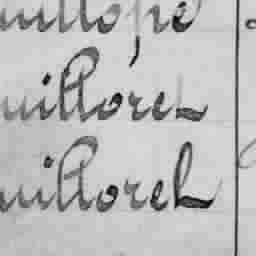 uillopé
uilloret
uillorel